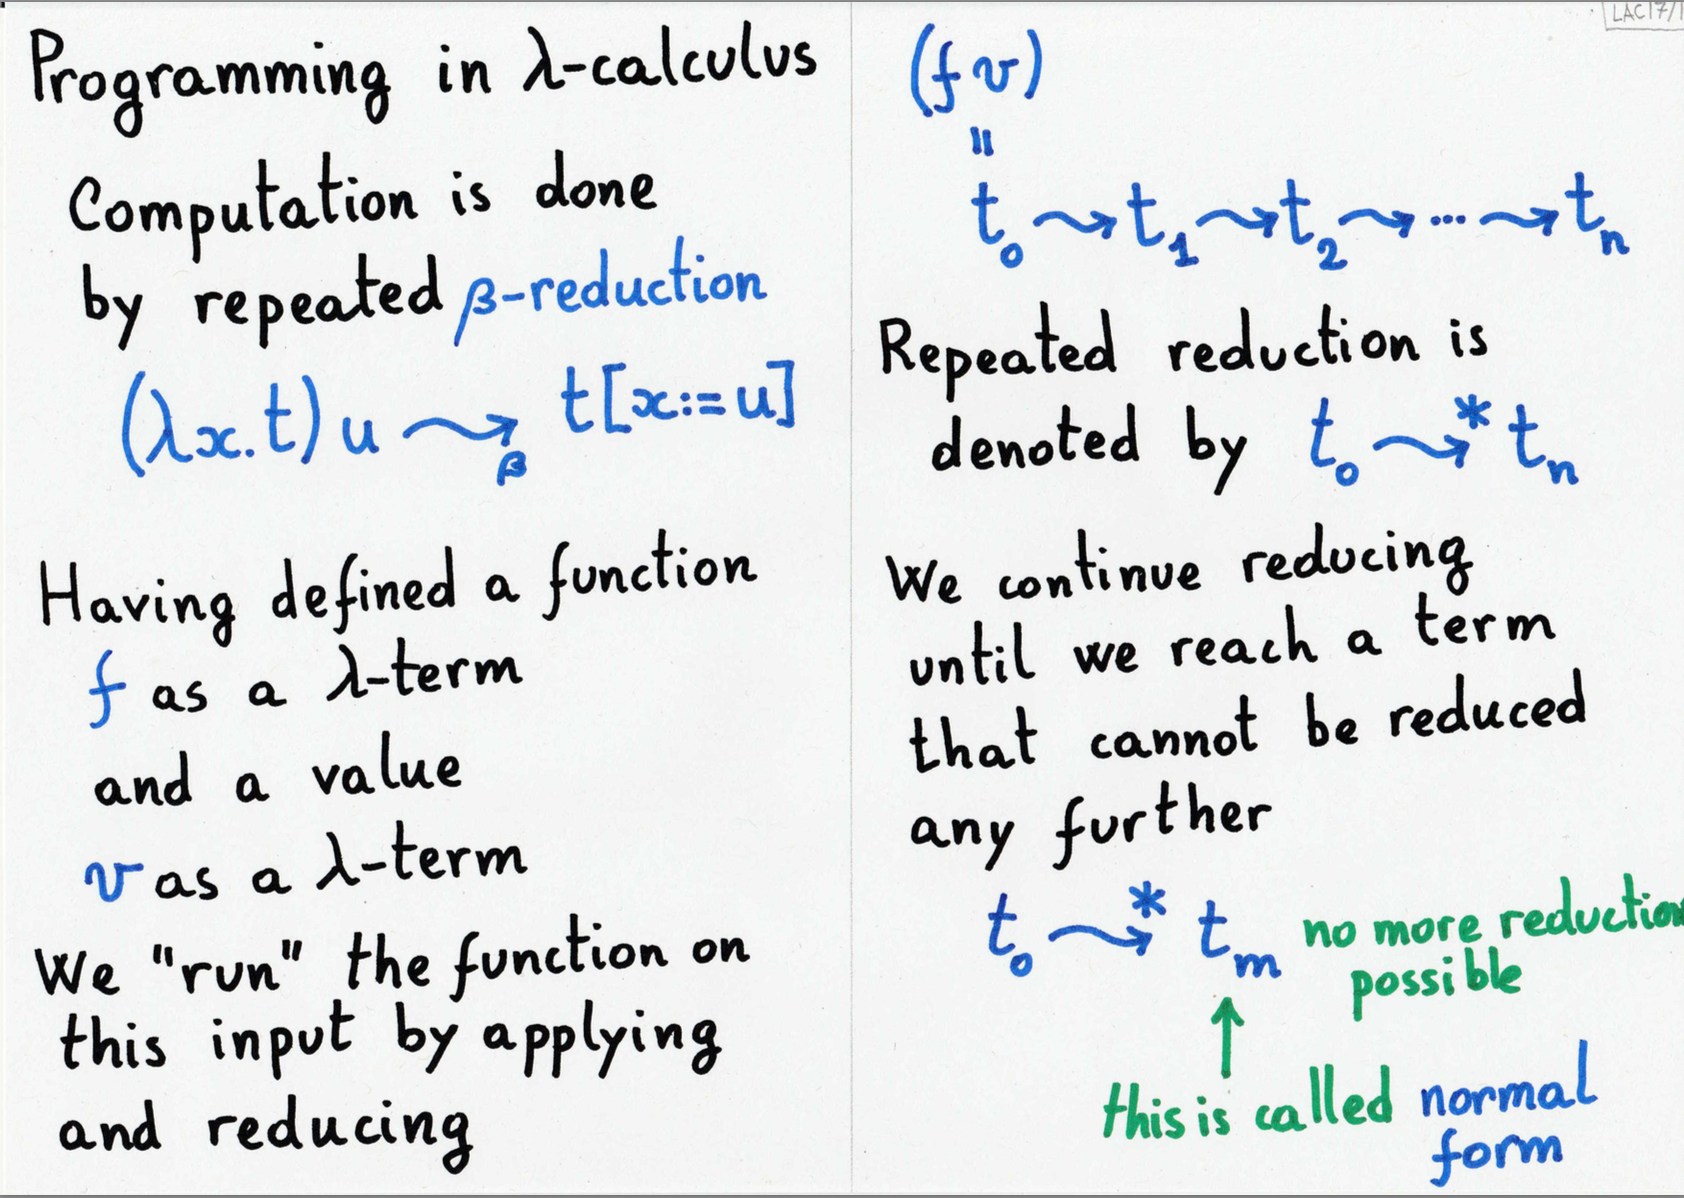 Programming in λ-calculus
Computation is done
by repeated β-reduction
(λx.t) u ⇝β t[x:=u]
Having defined a function
f as a λ-term
and a value
v as a λ-term
We "run" the function on
this input by applying
and reducing
LAC17/1
(f v)
=
t₀ ⇝ t₁ ⇝ t₂ ⇝ ... ⇝ tₙ
Repeated reduction is
denoted by t₀ ⇝* tₙ
We continue reducing
until we reach a term
that cannot be reduced
any further
t₀ ⇝* tₘ no more reduction
possible
↑
this is called normal
form